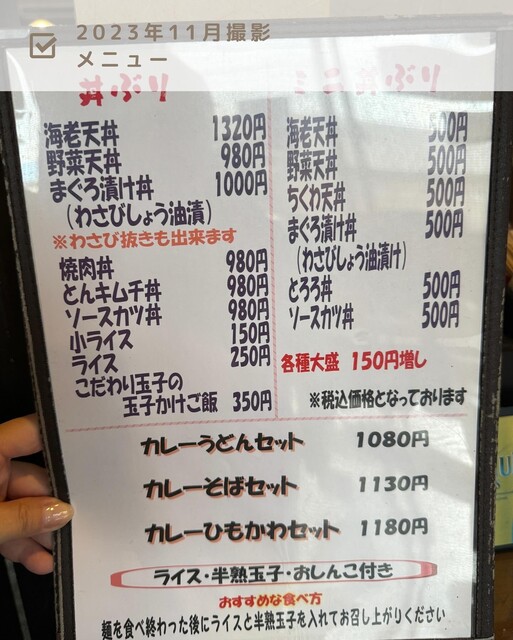 2023年11月撮影
メニュー
丼ぶり
海老天丼 1320円
野菜天丼 980円
まぐろ漬け丼 1000円
(わさびしょう油漬)
※わさび抜きも出来ます
焼肉丼 980円
とんキムチ丼 980円
ソースカツ丼 980円
小ライス 150円
ライス 250円
こだわり玉子の
玉子かけご飯 350円
ミニ丼ぶり
海老天丼 500円
野菜天丼 500円
ちくわ天丼 500円
まぐろ漬け丼 500円
(わさびしょう油漬け)
とろろ丼 500円
ソースカツ丼 500円
各種大盛 150円増し
※税込価格となっております
カレーうどんセット 1080円
カレーそばセット 1130円
カレーひもかわセット 1180円
ライス・半熟玉子・おしんこ付き
おすすめな食べ方
麺を食べ終わった後にライスと半熟玉子を入れてお召し上がりください